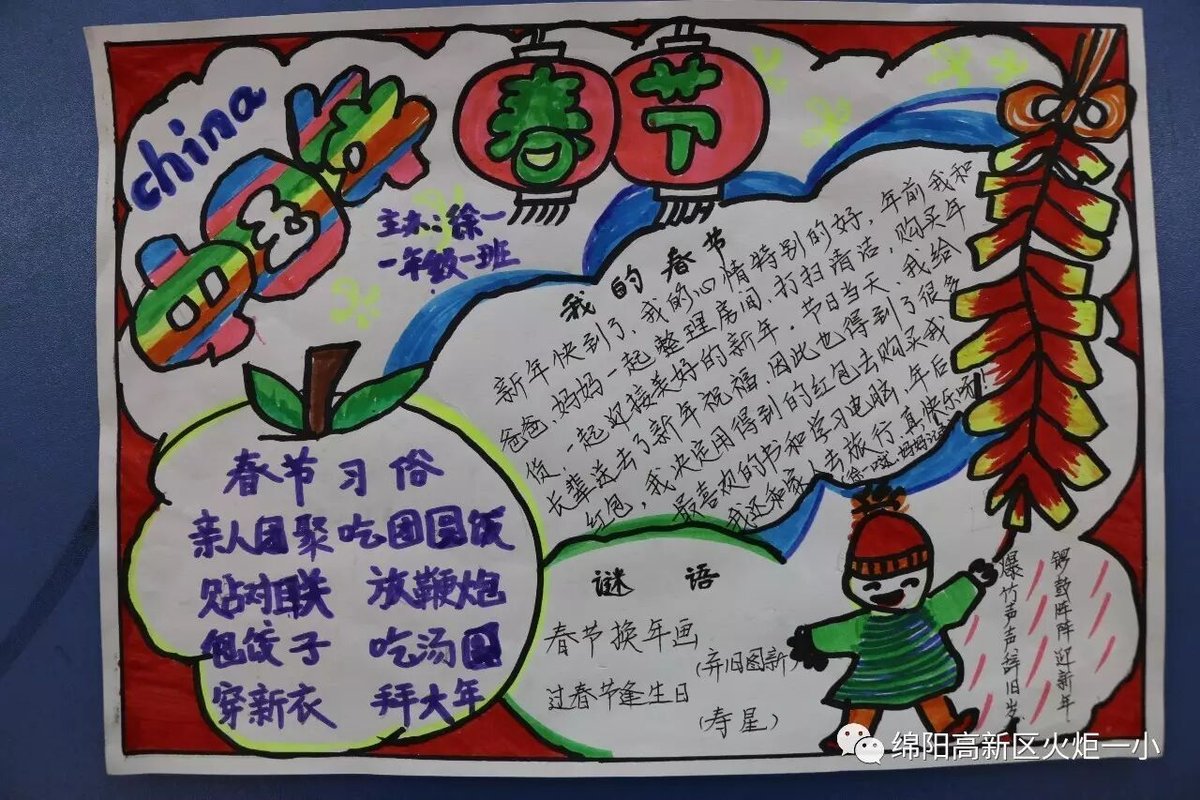 china
中国结
春节
主办：徐一
一年级一班
我的春节
新年快到了，我的心情特别的好，年前我和
爸爸、妈妈一起整理房间，打扫清洁，购买年
货，一起迎接美好的新年。节日当天，我给
长辈送去了新年祝福，因此也得到了很多
红包，我决定用得到的红包去购买我
最喜欢的书和学习电脑，年后
我还和家人去旅行真快乐呀！
春节习俗
亲人团聚 吃团圆饭
贴对联 放鞭炮
包饺子 吃汤圆
穿新衣 拜大年
谜语
春节换年画
（弃旧图新）
过春节逢生日
（寿星）
锣鼓阵阵迎新年
爆竹声声辞旧岁
绵阳高新区火炬一小